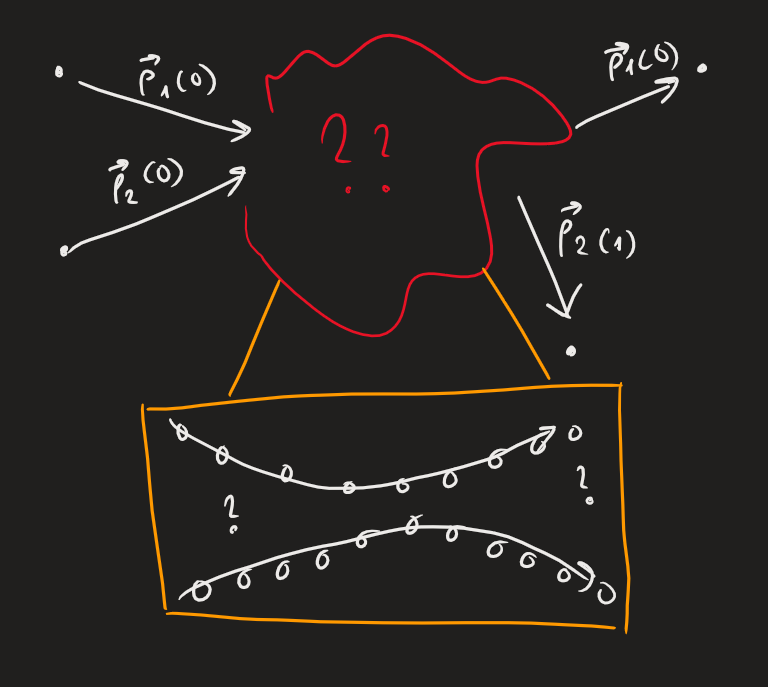 p⃗₁(0)
p⃗₁(0)
p⃗₂(0)
??
p⃗₂(1)
?
?